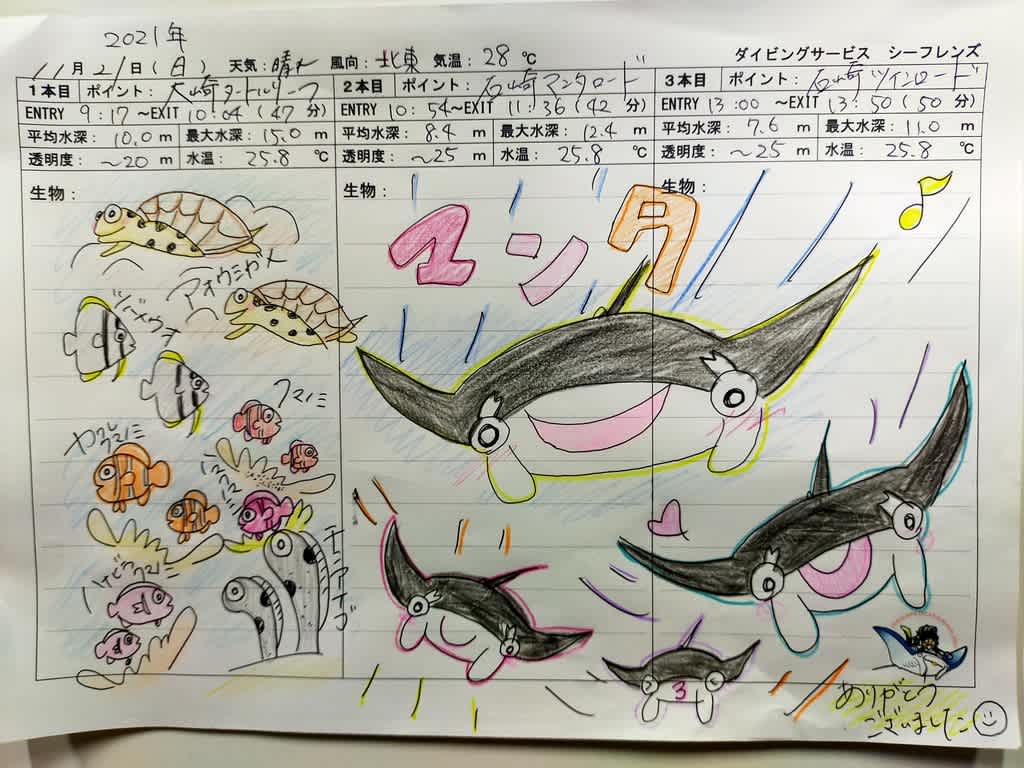 2021年
11月21日(日) 天気:晴れ 風向:北東 気温:28℃ ダイビングサービス シーフレンズ
1本目 ポイント:大崎タートルリーフ 2本目 ポイント:石崎マンタロード 3本目 ポイント:石崎ツインロード
ENTRY 9:17~EXIT 10:04(47分) ENTRY 10:54~EXIT 11:36(42分) ENTRY 13:00~EXIT 13:50(50分)
平均水深: 10.0 m 最大水深: 15.0 m 平均水深: 8.4 m 最大水深: 12.4 m 平均水深: 7.6 m 最大水深: 11.0 m
透明度: ~20 m 水温: 25.8 ℃ 透明度: ~25 m 水温: 25.8 ℃ 透明度: ~25 m 水温: 25.8 ℃
生物: 生物: 生物:
マンタ
アオウミガメ
ツバメウオ
クマノミ
カクレクマノミ
ハマクマノミ
ハナビラクマノミ
3
ありがとう
ございました